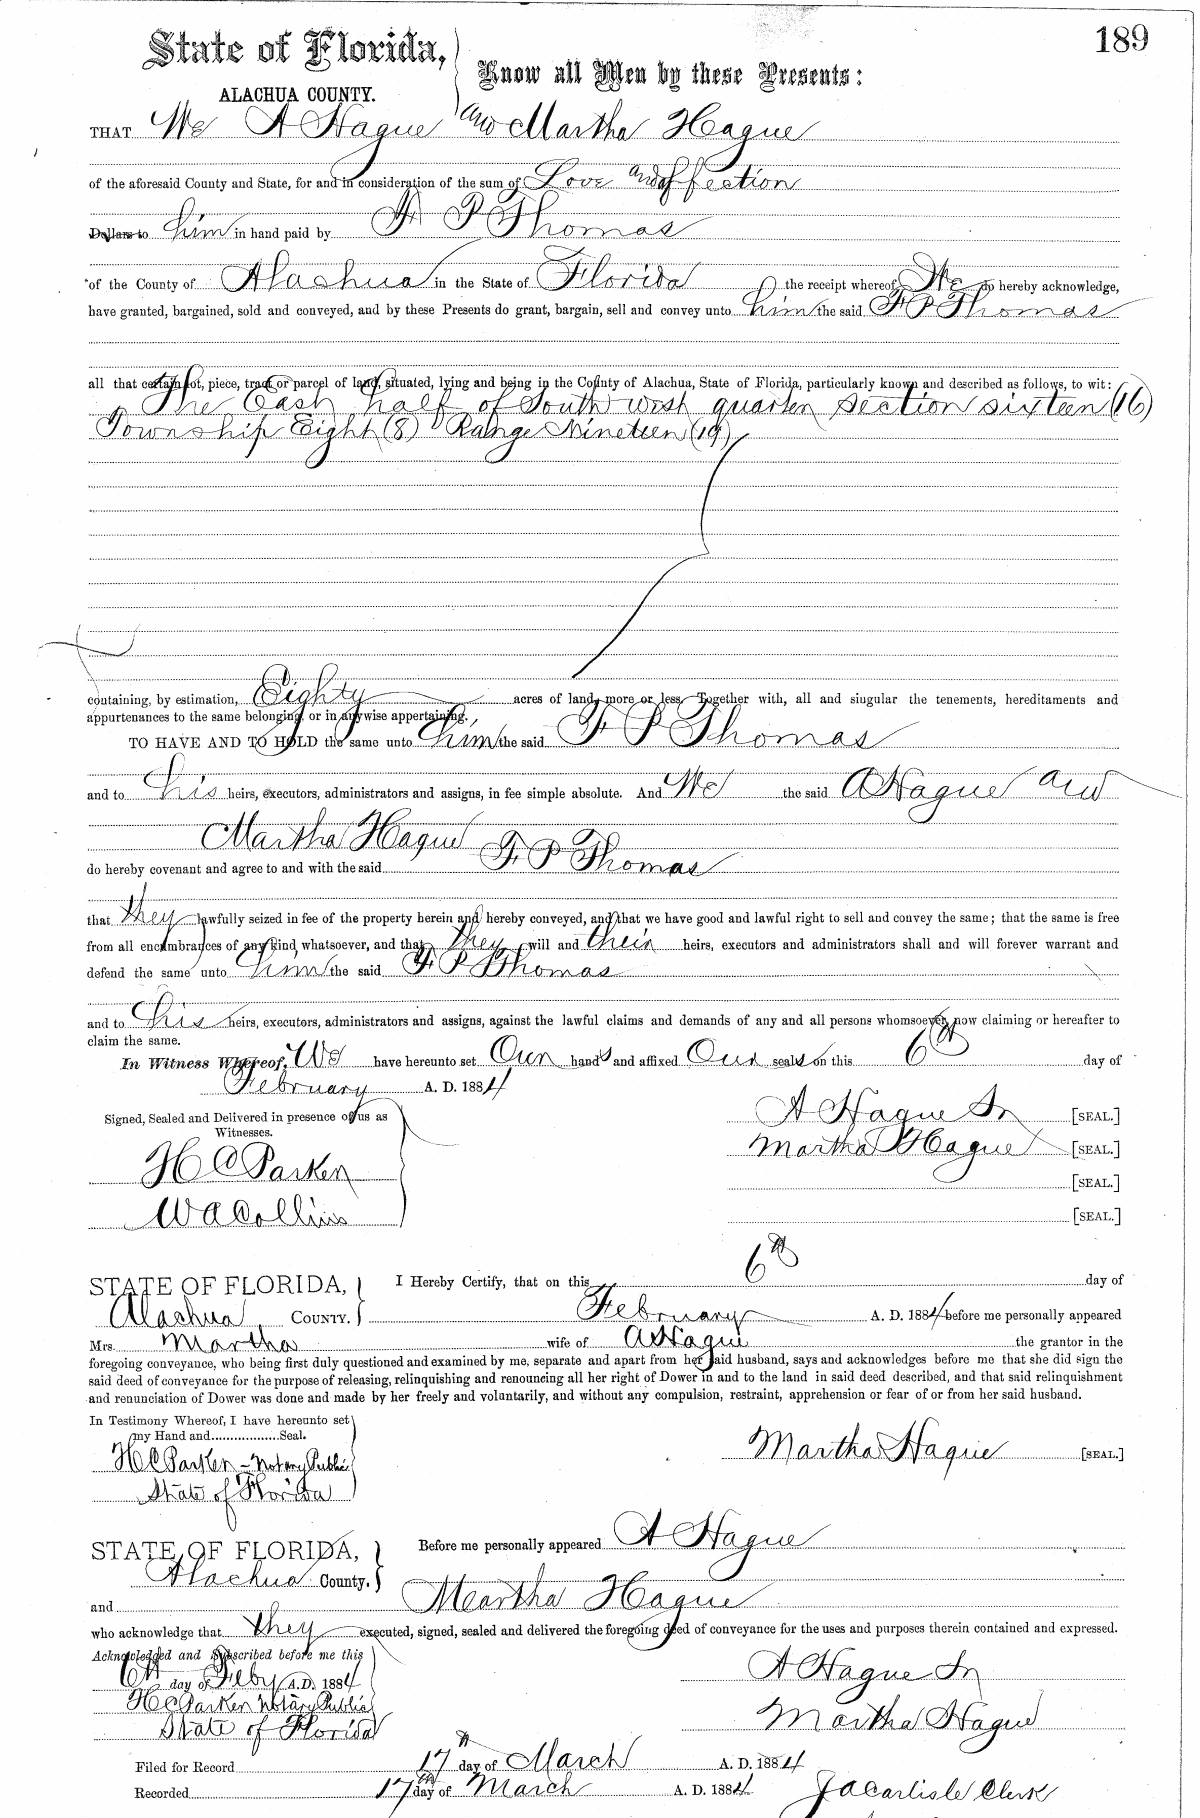 189
State of Florida,
ALACHUA COUNTY.
Know all Men by these Presents:
THAT We A Hague and Martha Hague
of the aforesaid County and State, for and in consideration of the sum of Love and affection
Dollars to him in hand paid by F P Thomas
of the County of Alachua in the State of Florida the receipt whereof We do hereby acknowledge,
have granted, bargained, sold and conveyed, and by these Presents do grant, bargain, sell and convey unto him the said F P Thomas
all that certain lot, piece, tract or parcel of land, situated, lying and being in the County of Alachua, State of Florida, particularly known and described as follows, to wit:
The East half of South west quarter section sixteen (16)
Township Eight (8) Range Nineteen (19)
containing, by estimation, Eighty acres of land, more or less. Together with, all and singular the tenements, hereditaments and
appurtenances to the same belonging, or in anywise appertaining.
TO HAVE AND TO HOLD the same unto him the said F P Thomas
and to his heirs, executors, administrators and assigns, in fee simple absolute. And We the said A Hague and
Martha Hague
do hereby covenant and agree to and with the said F P Thomas
that they lawfully seized in fee of the property herein and hereby conveyed, and that we have good and lawful right to sell and convey the same; that the same is free
from all encumbrances of any kind whatsoever, and that they will and their heirs, executors and administrators shall and will forever warrant and
defend the same unto him the said F P Thomas
and to his heirs, executors, administrators and assigns, against the lawful claims and demands of any and all persons whomsoever, now claiming or hereafter to
claim the same.
In Witness Whereof, We have hereunto set Our hands and affixed Our seals on this 6th day of
February A. D. 1884
Signed, Sealed and Delivered in presence of us as
Witnesses.
A Hague Sr [SEAL.]
Martha Hague [SEAL.]
H C Parker [SEAL.]
W A Collins [SEAL.]
STATE OF FLORIDA, I Hereby Certify, that on this 6th day of
Alachua COUNTY. February A. D. 1884 before me personally appeared
Mrs. Martha wife of A Hague the grantor in the
foregoing conveyance, who being first duly questioned and examined by me, separate and apart from her said husband, says and acknowledges before me that she did sign the
said deed of conveyance for the purpose of releasing, relinquishing and renouncing all her right of Dower in and to the land in said deed described, and that said relinquishment
and renunciation of Dower was done and made by her freely and voluntarily, and without any compulsion, restraint, apprehension or fear of or from her said husband.
In Testimony Whereof, I have hereunto set
my Hand and.................Seal.
H C Parker - Notary Public
State of Florida
Martha Hague [SEAL.]
STATE OF FLORIDA, Before me personally appeared A Hague
Alachua County.
and Martha Hague
who acknowledge that they executed, signed, sealed and delivered the foregoing deed of conveyance for the uses and purposes therein contained and expressed.
Acknowledged and Subscribed before me this
6th day of Feby A.D. 1884
H C Parker Notary Public
State of Florida
A Hague Sr
Martha Hague
Filed for Record 17th day of March A. D. 1884
Recorded 17th day of March A. D. 1884 J A Carlisle Clerk